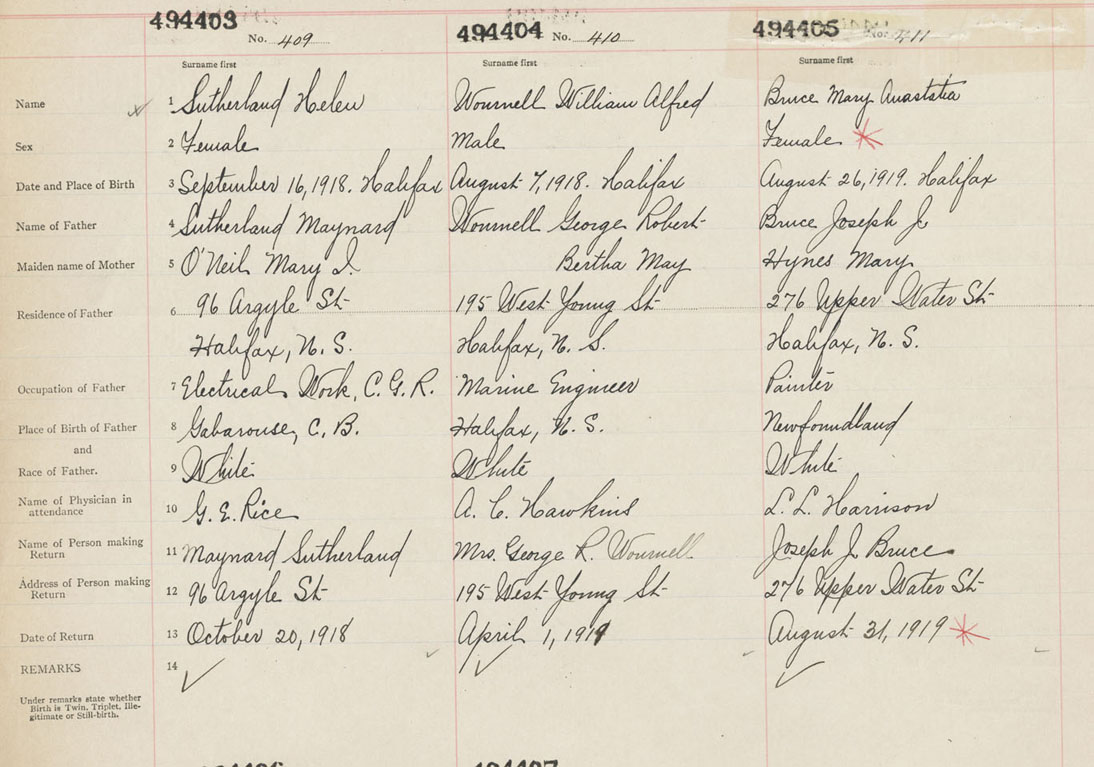 494403 494404 494405
No. 409 No. 410 No. 411
Surname first Surname first Surname first
Name 1 Sutherland Helen Wournell William Alfred Bruce Mary Anastatia
Sex 2 Female Male Female
Date and Place of Birth 3 September 16, 1918. Halifax August 7, 1918. Halifax August 26, 1919. Halifax
Name of Father 4 Sutherland Maynard Wournell George Robert Bruce Joseph J
Maiden name of Mother 5 O'Neil Mary I. Bertha May Hynes Mary
Residence of Father 6 96 Argyle St 195 West Young St 276 Upper Water St
Halifax, N. S. Halifax, N. S. Halifax, N. S.
Occupation of Father 7 Electrical Work, C. G. R. Marine Engineer Painter
Place of Birth of Father 8 Gabarouse, C. B. Halifax, N. S. Newfoundland
and
Race of Father. 9 White White White
Name of Physician in
attendance 10 G. E. Rice A. C. Hawkins L. L. Harrison
Name of Person making
Return 11 Maynard Sutherland Mrs. George R. Wournell Joseph J Bruce
Address of Person making
Return 12 96 Argyle St 195 West Young St 276 Upper Water St
Date of Return 13 October 20, 1918 April 1, 1919 August 31, 1919
REMARKS 14
Under remarks state whether
Birth is Twin, Triplet, Ille-
gitimate or Still-birth.